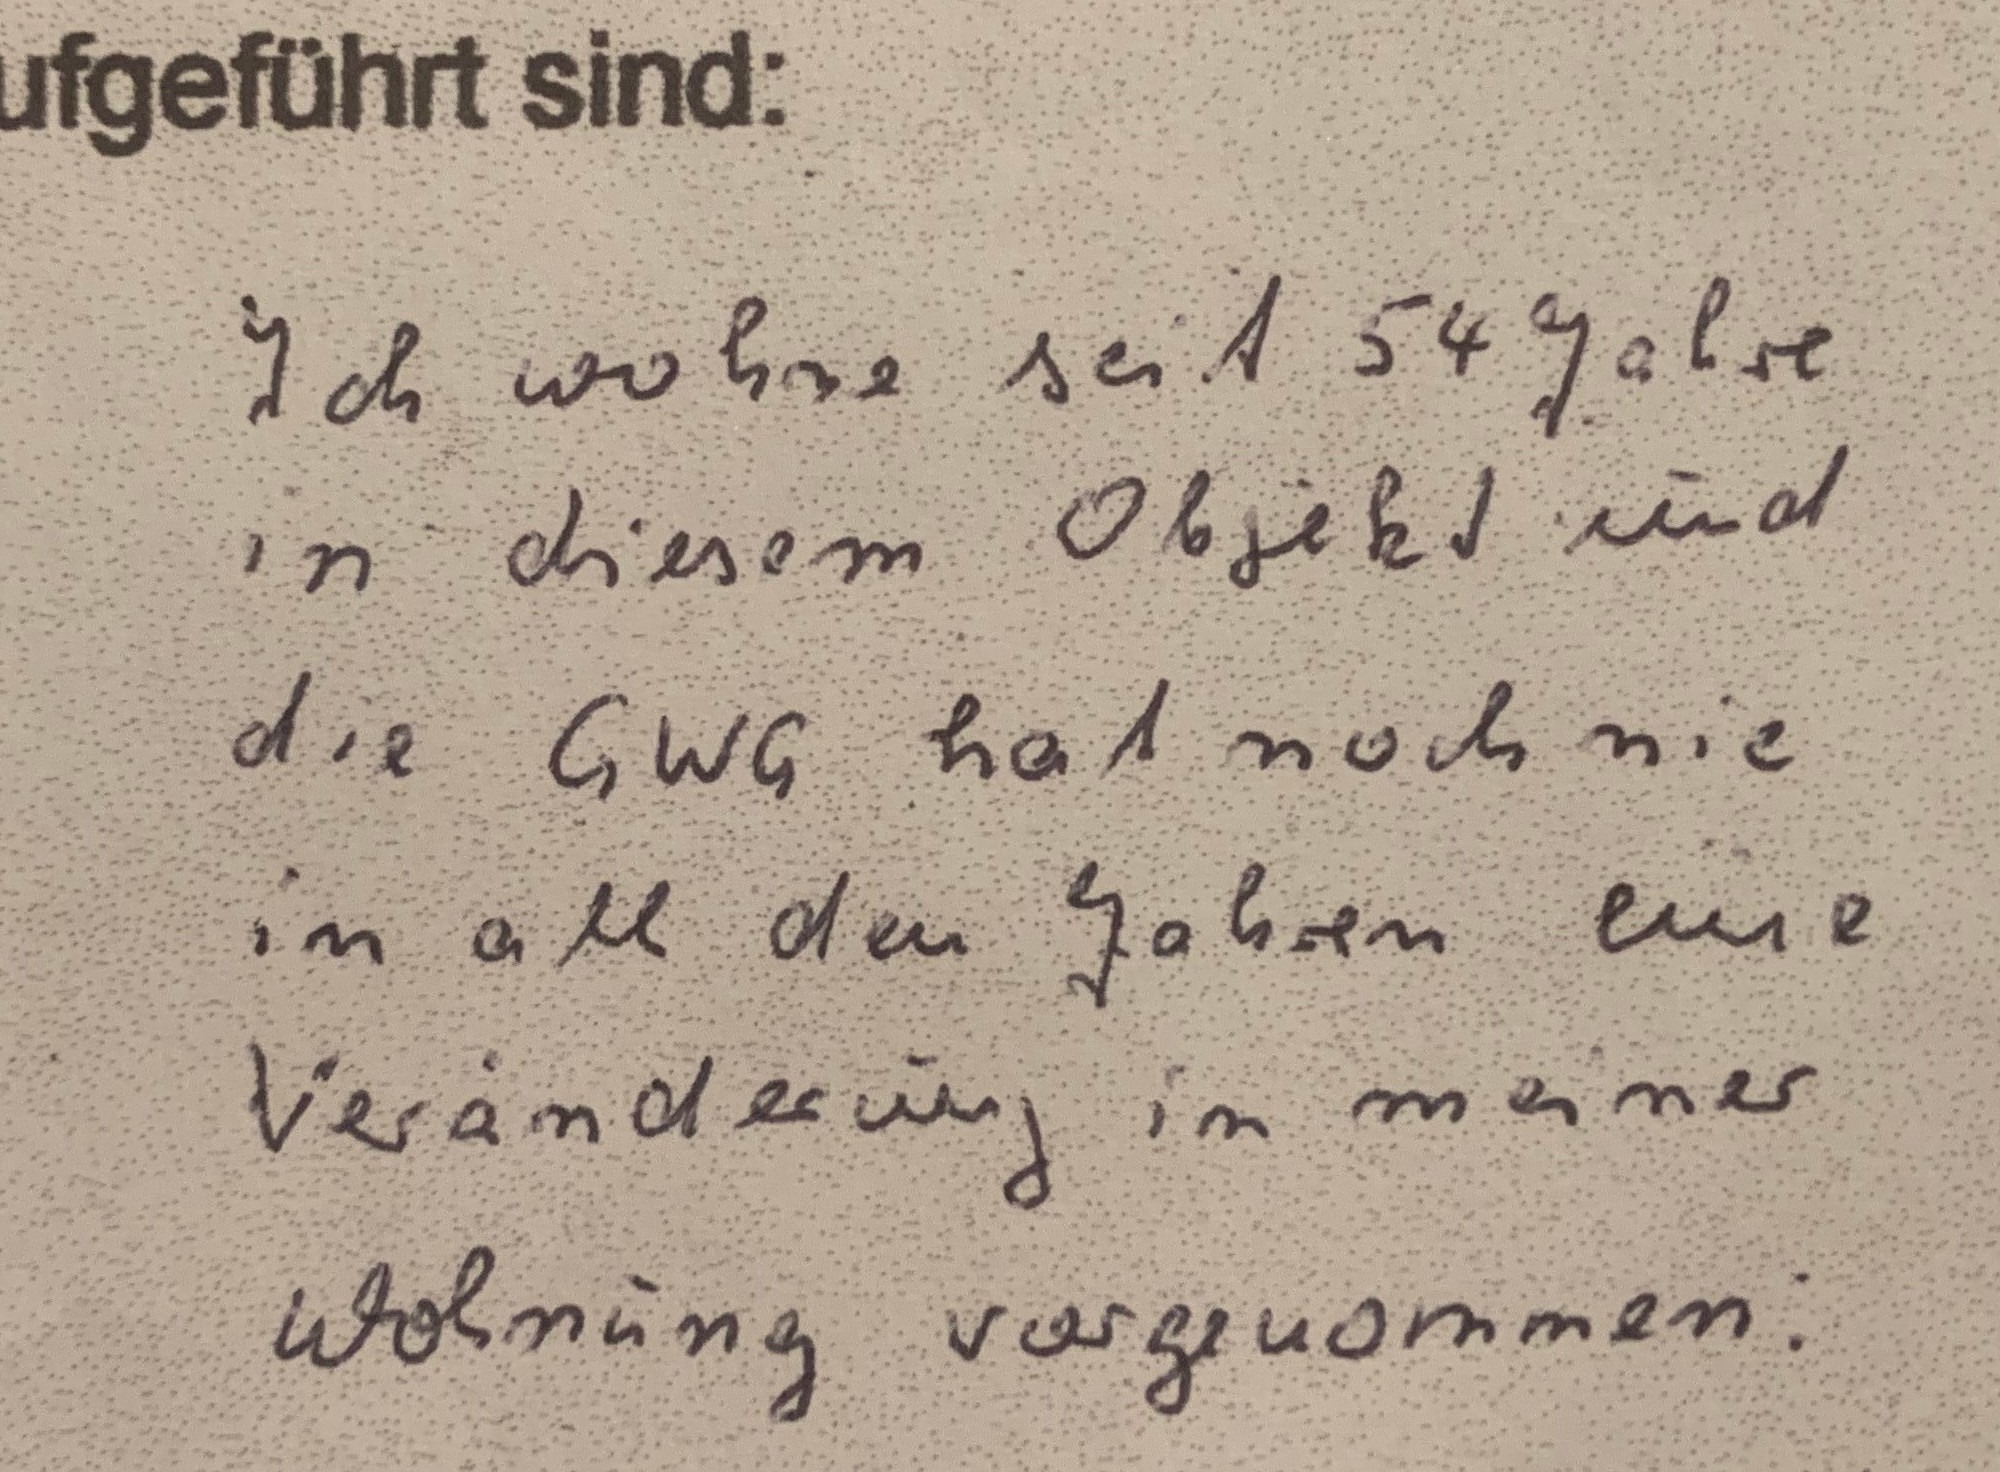 ufgeführt sind:
Ich wohne seit 54 Jahre
in diesem Objekt und
die GWG hat noch nie
in all den Jahren eine
Veränderung in meiner
Wohnung vorgenommen.